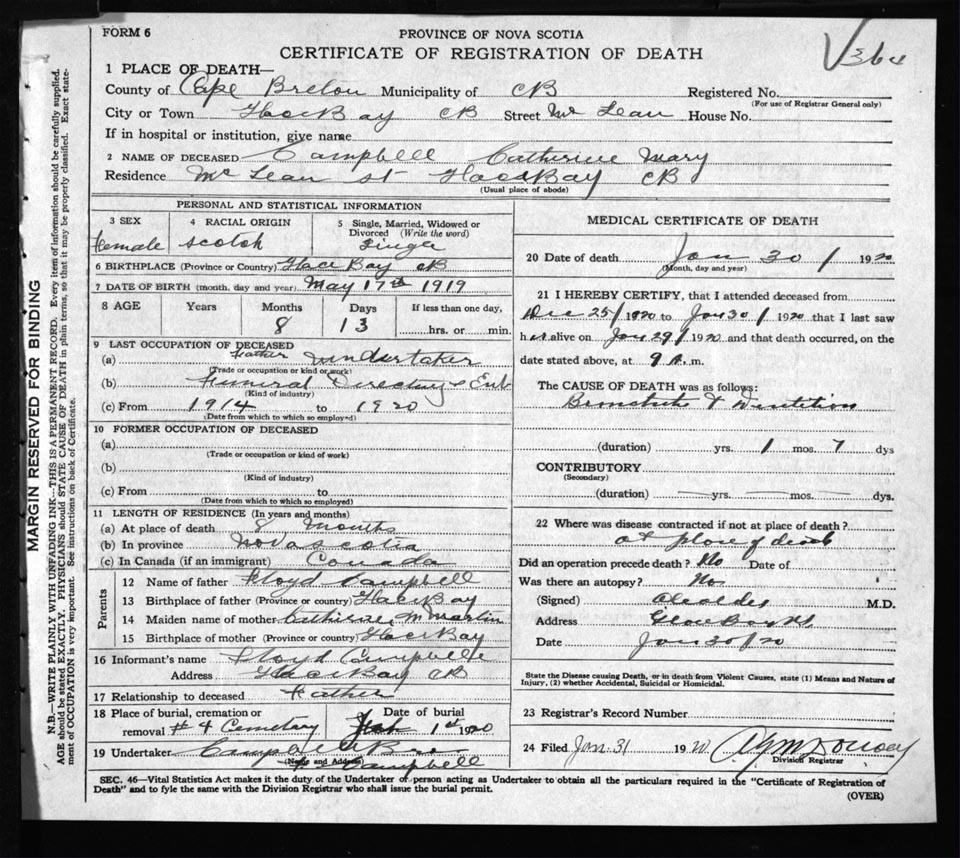 FORM 6
PROVINCE OF NOVA SCOTIA
CERTIFICATE OF REGISTRATION OF DEATH
MARGIN RESERVED FOR BINDING
N.B.—WRITE PLAINLY WITH UNFADING INK—THIS IS A PERMANENT RECORD. Every item of information should be carefully supplied.
AGE should be stated EXACTLY. PHYSICIANS should STATE CAUSE OF DEATH in plain terms, so that it may be properly classified. Exact state-
ment of OCCUPATION is very important. See instructions on back of Certificate.
1 PLACE OF DEATH—
County of Cape Breton Municipality of CB Registered No.
(For use of Registrar General only)
City or Town Glace Bay CB Street Mc Lean House No.
If in hospital or institution, give name
2 NAME OF DECEASED Campbell Catherine Mary
Residence Mc Lean St Glace Bay CB
(Usual place of abode)
PERSONAL AND STATISTICAL INFORMATION
3 SEX 4 RACIAL ORIGIN 5 Single, Married, Widowed or
Divorced (Write the word)
Female Scotch Single
6 BIRTHPLACE (Province or Country) Glace Bay CB
7 DATE OF BIRTH (month, day and year) May 17th 1919
8 AGE Years Months Days If less than one day,
8 13 hrs. or min.
9 LAST OCCUPATION OF DECEASED
(a) Father Undertaker
(Trade or occupation or kind of work)
(b) Funeral Directory & Emb
(Kind of industry)
(c) From 1914 to 1920
(Date from which to which so employed)
10 FORMER OCCUPATION OF DECEASED
(a)
(Trade or occupation or kind of work)
(b)
(Kind of industry)
(c) From to
(Date from which to which so employed)
11 LENGTH OF RESIDENCE (In years and months)
(a) At place of death 8 months
(b) In province Nova Scotia
(c) In Canada (if an immigrant) Canada
Parents
12 Name of father Floyd Campbell
13 Birthplace of father (Province or country) Glace Bay
14 Maiden name of mother Catherine M Martin
15 Birthplace of mother (Province or country) Glace Bay
16 Informant's name Floyd Campbell
Address Glace Bay CB
17 Relationship to deceased Father
18 Place of burial, cremation or Date of burial
removal # 4 Cemetary Feb 1st 1920
19 Undertaker
(Name and Address)
Campbell
MEDICAL CERTIFICATE OF DEATH
20 Date of death Jan 30 / 1920
(Month, day and year)
21 I HEREBY CERTIFY, that I attended deceased from
Dec 25/1920 to Jan 30 / 1920 that I last saw
her alive on Jan 29/ 1920 and that death occurred, on the
date stated above, at 9 A.m.
The CAUSE OF DEATH was as follows:
Bronchitis & Dentition
(duration) yrs. 1 mos. 7 dys
CONTRIBUTORY
(Secondary)
(duration) yrs. mos. dys.
22 Where was disease contracted if not at place of death?
at place of death
Did an operation precede death? No Date of
Was there an autopsy? No
(Signed) M.D.
Address Glace Bay
Date Jan 30/20
State the Disease causing Death, or in death from Violent Causes, state (1) Means and Nature of
Injury, (2) whether Accidental, Suicidal or Homicidal.
23 Registrar's Record Number
24 Filed Jan. 31 1920
Division Registrar
SEC. 46—Vital Statistics Act makes it the duty of the Undertaker or person acting as Undertaker to obtain all the particulars required in the "Certificate of Registration of
Death" and to fyle the same with the Division Registrar who shall issue the burial permit.
(OVER)